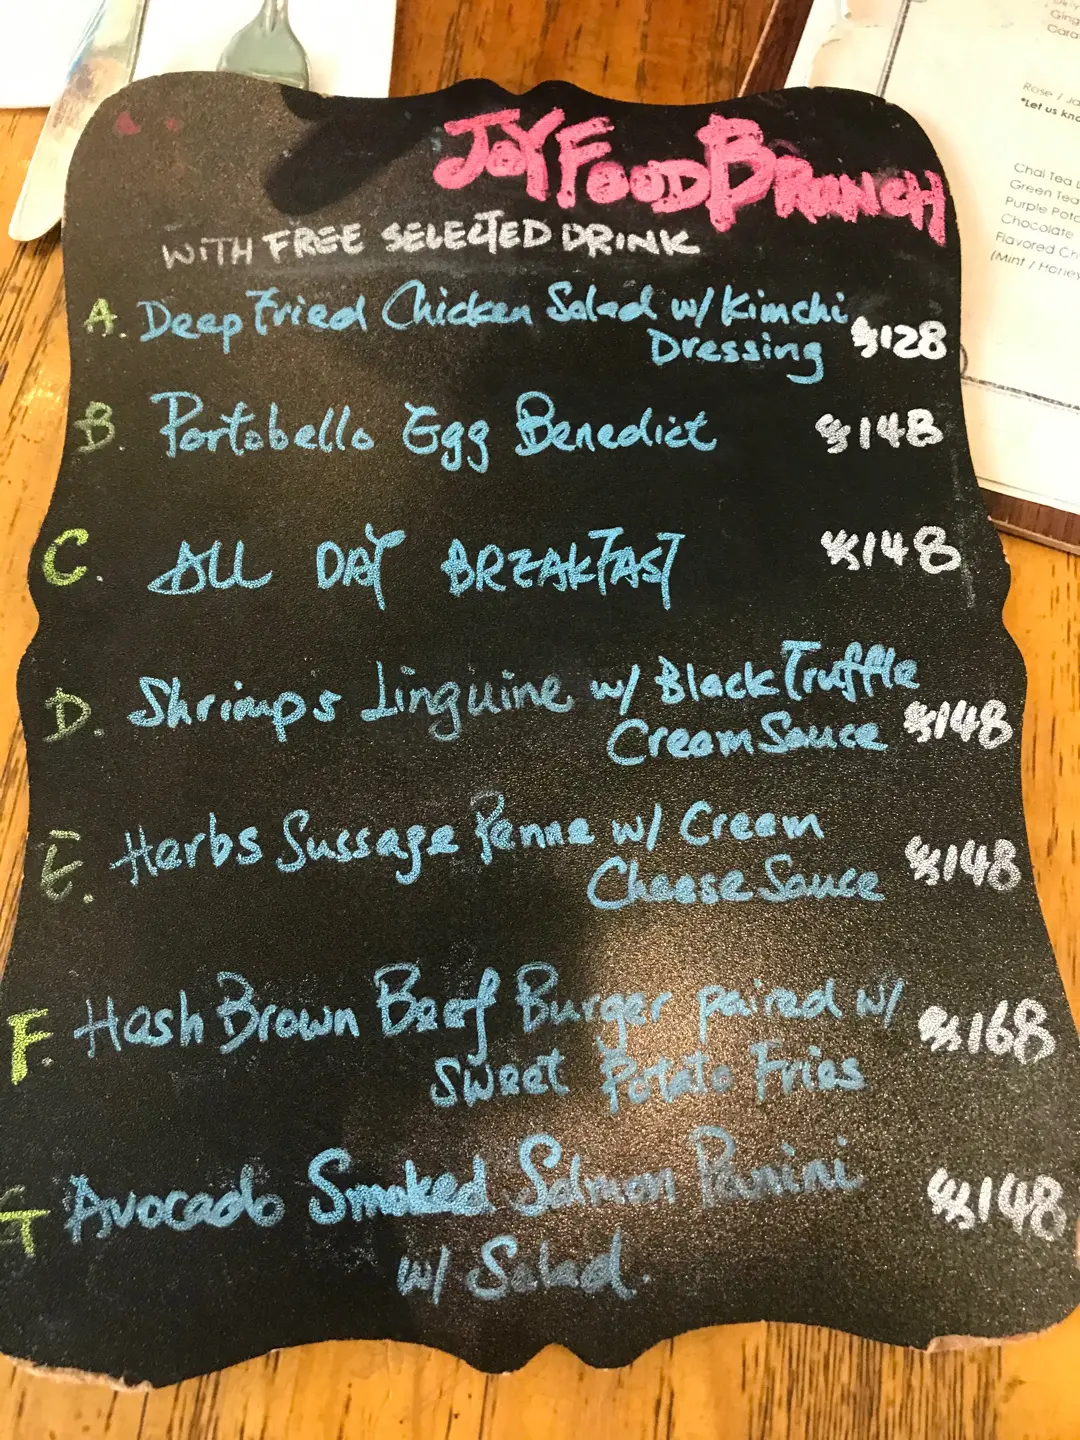 JOY FOOD BRUNCH
WITH FREE SELECTED DRINK
A. Deep Fried Chicken Salad w/ Kimchi
Dressing $128
B. Portobello Egg Benedict $148
C. ALL DAY BREAKFAST $148
D. Shrimps Linguine w/ Black Truffle
Cream Sauce $148
E. Herbs Sussage Penne w/ Cream
Cheese Sauce $148
F. Hash Brown Beef Burger paired w/ $168
Sweet Potato Fries
G Avocado Smoked Salmon Panini $148
w/ Salad.
Rose / Ja
*Let us kno
Chai Tea L
Green Tea
Purple Pota
Chocolate
Flavored Ch
(Mint / Honey